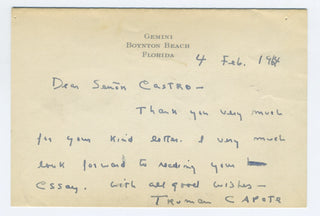 GEMINI
BOYNTON BEACH
FLORIDA
4 Feb. 
Dear Señor CASTRO—
Thank you very much
for your kind letter. I very much
look forward to reading your
essay. With all good wishes—
TRUMAN CAPOTE